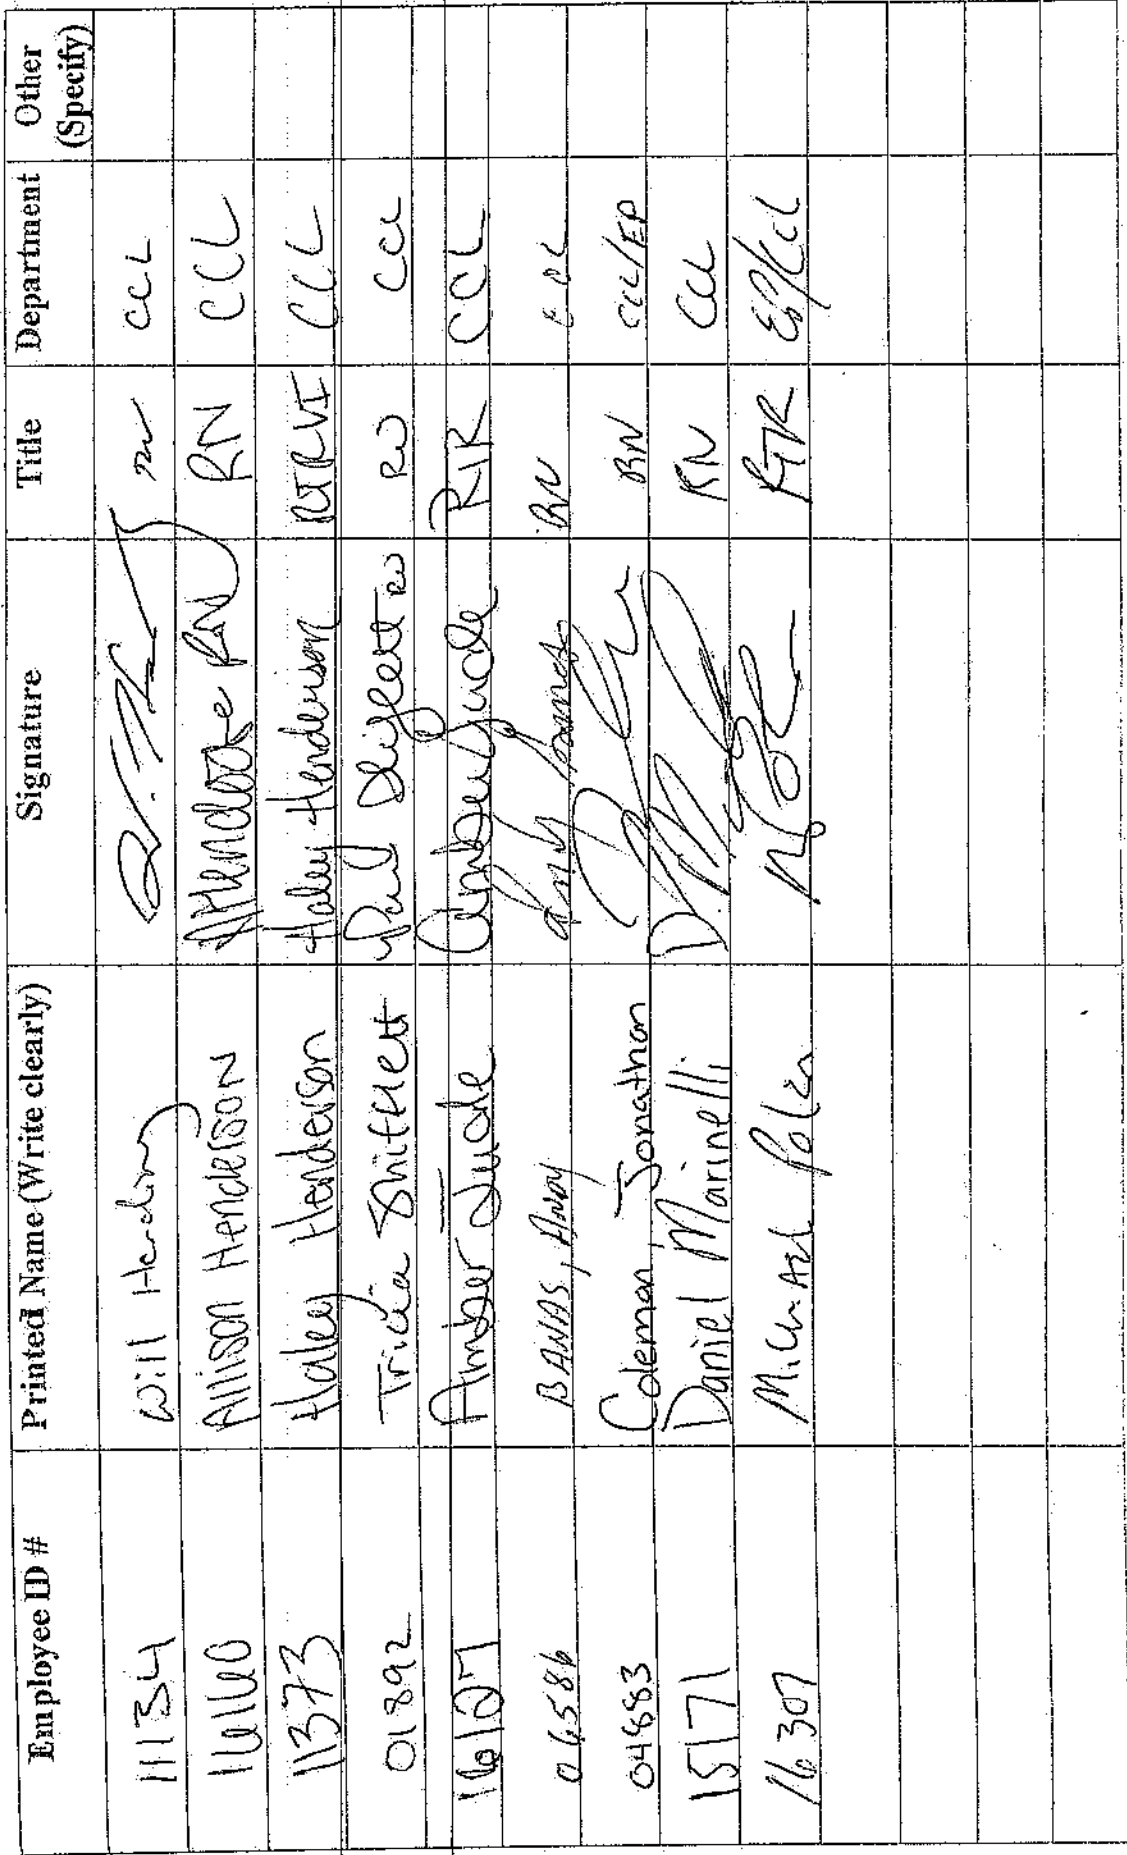 Employee ID # Printed Name (Write clearly) Signature Title Department Other (Specify)
11134 Will Harding CCL
16160 Allison Henderson RN CCL
11373 Haley Henderson Haley Henderson RTRVI CCL
01892 Tricia Shifflett RN CCL
16127 Amber Jude Amber Jude RTR CCL
06586 BANAS, ANDY RN
04883 Coleman, Jonathan RN CCL/EP
15171 Daniel Marinelli RN CCL
16307 Michael RTR EP/CCL